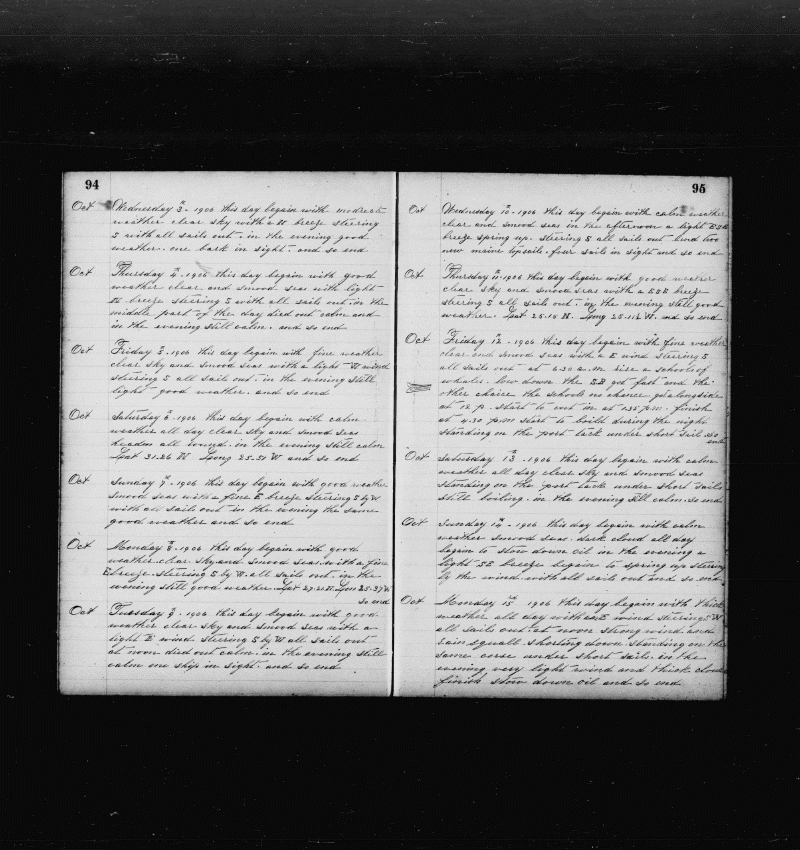 94
Oct Wednesday 3 - 1906 this day begain with moderate
weather clear sky with a N breeze steering
S with all sails out. in the evening good
weather. one bark in sight. and so end
Oct Thursday 4. 1906 this day begain with good
weather clear. and smood seas with light
N breeze steering S with all sails out. in the
middle part of the day died out calm and
in the evening still calm. and so end
Oct Friday 5. 1906 this day begain with fine weather
clear sky and smood seas with a light wind
steering S all sail out. in the evening still
light good weather. and so end
Oct Saturday 6. 1906 this day begain with calm
weather all day clear sky and smood seas
headen all round. in the evening still calm
Lat 31.26 N Long 25.51 W and so end
Oct Sunday 7. 1906 this day begain with good weather
smood seas with a fine E breeze steering S by W
with all sails out in the evening the same
good weather and so end
Oct Monday 8. 1906 this day begain with good
weather clear sky and smood seas. with a fine
E breeze. steering S by W. all sails out. in the
evening still good weather Lat 27.21 N. Lon 25.37 W
so end
Oct Tuesday 9. 1906 this day begain with good
weather clear sky and smood seas with a
light E wind steering S by W all sails out
at noon died out calm. in the evening still
calm one ship in sight. and so end
95
Oct Wednesday 10. 1906 this day begain with calm weather
clear and smood seas in the afternoon a light ESE
breeze spring up. steering S all sails out bend two
new maine topsails. four sails in sight and so end
Oct Thursday 11. 1906 this day begain with good weather
clear sky and smood seas with a ESE breeze
steering S all sails out. in the evening still good
weather. Lat 25.10 N. Long 25.11½ W. and so end
Oct Friday 12. 1906 this day begain with fine weather
clear and smood seas with a E wind steering S
all sails out at 6.30 a.m. rise a school of
whales. low down the SB got fast and the
other chaise the school no chance. got alongside
at 12 p. start to cut in at 1.35 p.m. finish
at 4.30 p.m start to boile during the night
standing on the port tack under short sail so
end
Oct Saturday 13. 1906 this day begain with calm
weather all day clear sky and smood seas
standing on the port tack under short sails
still boiling. in the evening still calm. so end
Oct Sunday 14. 1906 this day begain with calm
weather smood seas. dark cloud all day
begain to stow down oil in the evening a
light SE breeze begain to spring up steering
by the wind with all sails out and so end
Oct Monday 15. 1906 this day begain with thick
weather all day with an E wind steering S W
all sails out. at noon strong wind and
rain squall shorting down standing on the
same corse under short sails. in the
evening very light wind and thick cloud
finish stow down oil and so end